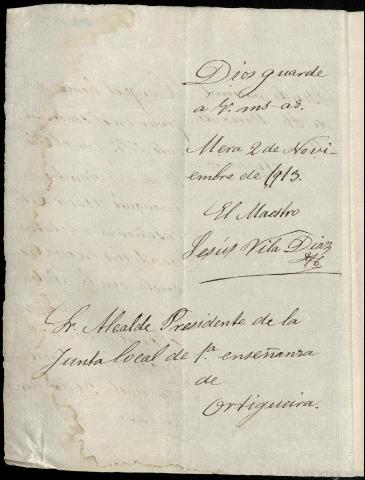 Dios guarde
a V. ms. as.
Mera 2 de Novi-
embre de 1913.
El Maestro
Jesús Vila Diaz
Sr. Alcalde Presidente de la
Junta local de 1ª enseñanza
de
Ortigueira.